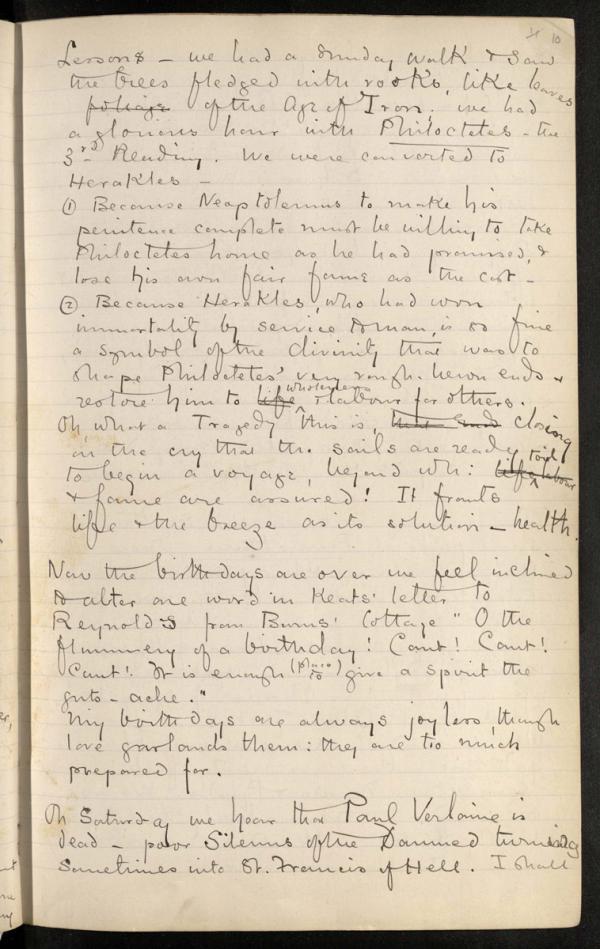 10
Lessons – we had a Sunday walk & saw
the trees fledged with rooks, like leaves
foliage of the Age of Iron; we had
a glorious hour with Philoctetes – the
3rd Reading. We were converted to
Herakles –
① Because Neoptolemus to make his
penitence complete must be willing to take
Philoctetes home as he had promised, &
lose his own fair fame as the cost –
② Because Herakles, who had won
immortality by service to man, is so fine
a symbol of the divinity that was to
shape Philoctetes' very rough-hewn ends &
restore him to life wholeness & labour for others.
Oh, what a Tragedy this is, that ends closing
on the cry that the sails are ready
to begin a voyage, beyond wh: life toil labour
& fame are assured! It fronts
life & the breeze as its solution – health.
Now the birthdays are over we feel inclined
to alter one word in Keats' letter to
Reynolds from Burns' Cottage "O the
flummery of a birthday! Cant! Cant!
Cant! It is enough (pluco) to give a spirit the
guts-ache."
My birthdays are always joyless, though
love garlands them: they are too much
prepared for.
On Saturday we hear that Paul Verlaine is
dead – poor Silenus of the Damned turning
sometimes into St. Francis of Hell. I shall